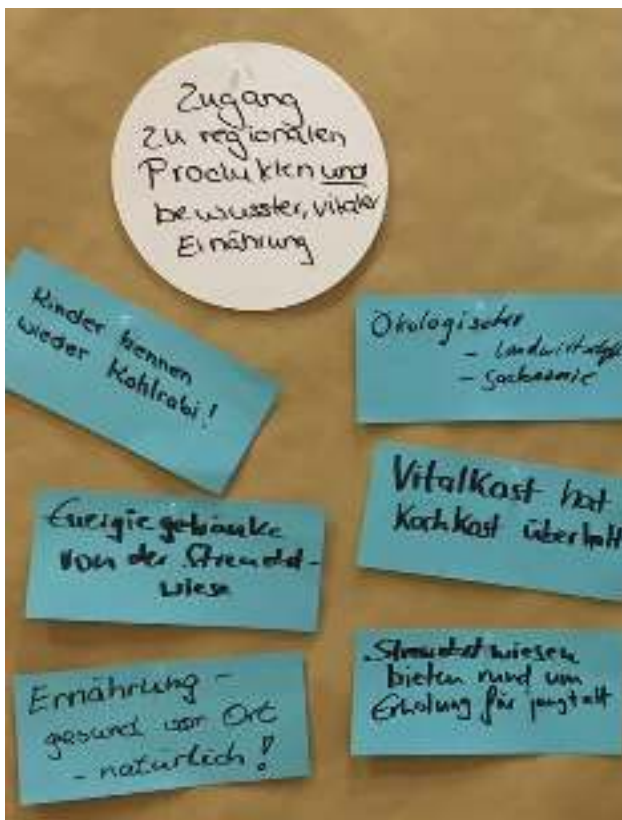 Zugang
zu regionalen
Produkten und
bewusster, vitaler
Ernährung
Kinder kennen
wieder Kohlrabi!
Ökologischer
- Landwirtsch
-
Energiegetränke
von der Streuobst-
wiese
Vitalkost hat
Kochkost überholt
Ernährung -
gesund vor Ort
- natürlich!
Streuobstwiesen
bieten rund um
Erholung für jung + alt